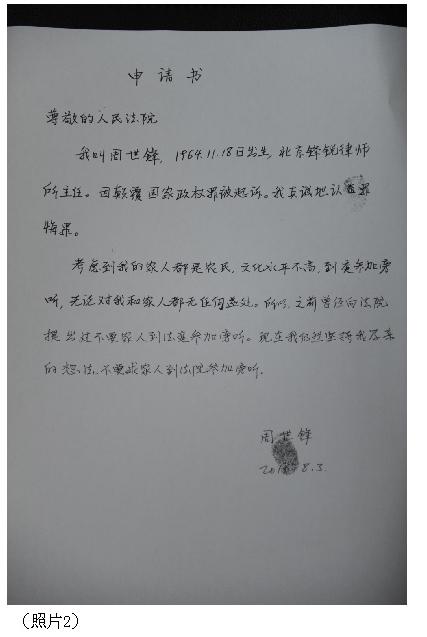 申请书
尊敬的人民法院
我叫周世锋，1964.11.18日出生，北京锋锐律师
所主任。因颠覆国家政权罪被起诉。我真诚地认罪
悔罪。
考虑到我的家人都是农民，文化水平不高，到庭参加旁
听，无论对我和家人都无任何益处。所以，之前曾经向法院
提出过不要家人到法庭参加旁听。现在我仍然坚持我原来
的想法，不要求家人到法院参加旁听。
周世锋
8.3.
（照片2）